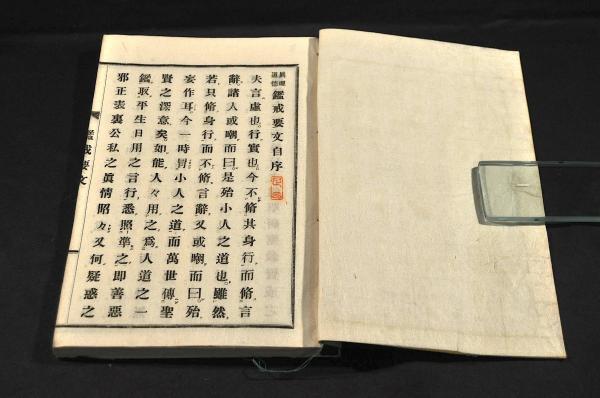 鑑戒要文自序
夫言虚也行實也今不脩其身行而脩言
辭諸人或嘲而曰是殆小人之道也雖然
若只脩身行而不脩言辭又或嘲而曰殆
妄作耳今一時冐小人之道而萬世傳聖
賢之深意矣如能人々用之爲人道之一
鑑取平生日用之言行悉照準之即善惡
邪正表裏公私之眞情昭々又何疑惑之
鑑戒要文